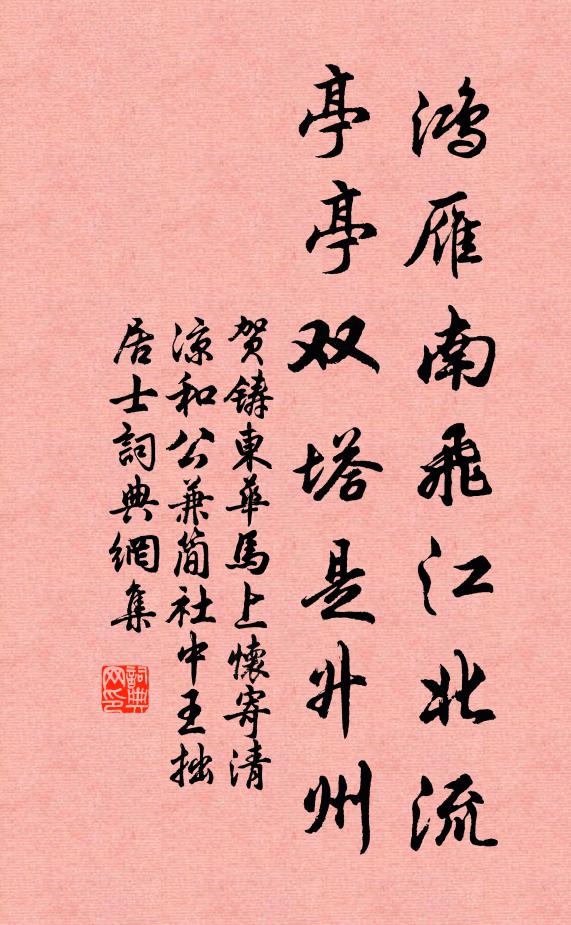 鸿雁南飛江北流
亭亭双塔是升州
贺鑄東華馬上懷寄清
涼和公兼简社中王拙
居士詞典網集
詞典网印